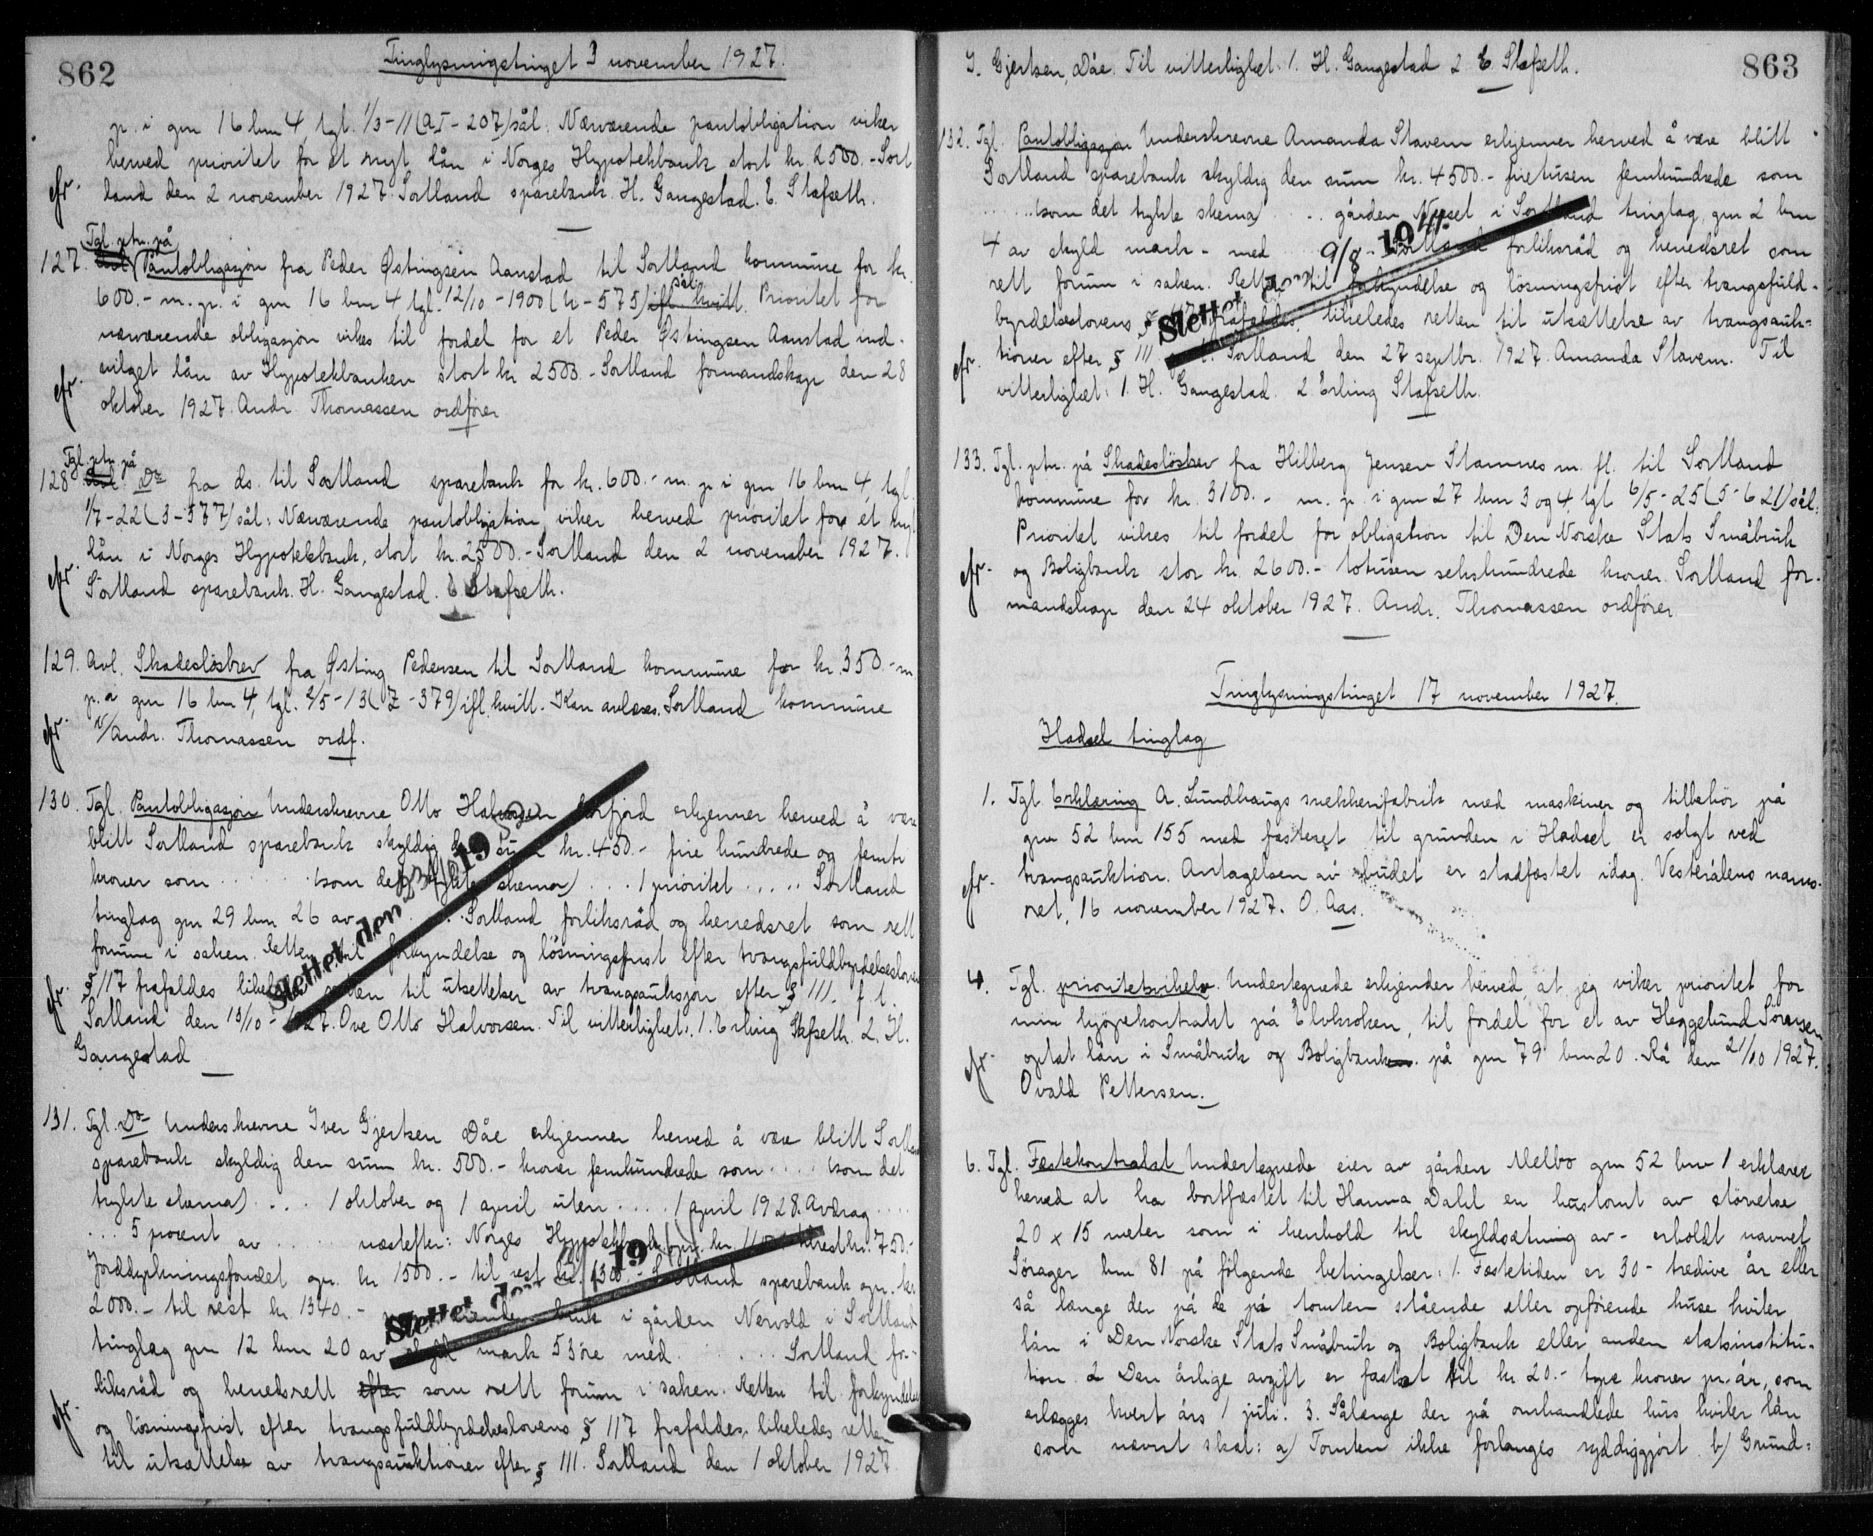 862
Tinglysningstinget 3 november 1927.
p. i gnr 16 bnr 4 tgl. 1/3-11 (A I-207) sål: Nærværende pantobligation viker
herved prioritet for et nyt lån i Norges Hypotekbank stort kr 2500.- Sort
land den 2 november 1927. Sortland sparebank H. Gangestad. E. Stafseth.
Tgl. ptr. på
127. Pantobligasjon fra Peder Østingsen Aanstad til Sortland kommune for kr.
600.- m. p. i gnr 16 bnr 4 tgl. 12/10-1900 ( -575) ifl. kvitt. sål: Prioritet for
nærværende obligasjon vikes til fordel for et Peder Østingsen Aanstad ind-
vilget lån av Hypotekbanken stort kr 2500.- Sortland formandskap den 28
oktober 1927. Andr. Thomassen ordfører
Tgl. ptr. på
128. Do fra ds. til Sortland sparebank for kr. 600.- m. p. i gnr 16 bnr 4, tgl.
1/7-22 (3-577) sål: Nærværende pantobligation viker herved prioritet for et nyt
lån i Norges Hypotekbank, stort kr. 2500.- Sortland den 2 november 1927.
Sortland sparebank. H. Gangestad. E Stafseth.
129. Avl. Skadesløsbrev fra Østing Pedersen til Sortland kommune for kr. 350.- m
p. a gnr 16 bnr 4, tgl. 2/5-13 (7-379) ifl. kvitt. Kan avlæses. Sortland kommune
v/Andr. Thomassen ordf.
130. Tgl. Pantobligasjon Underskrevne Otto Halvorsen erkjenner herved å være
blitt Sortland sparebank skyldig den sum kr. 450.- fire hundrede og femti
kroner som ..... (som det trykte skema) .... 1 prioritet ..... Sortland
tinglag gnr 29 bnr 26 av .... Sortland forliksråd og herredsret som rett
forum i saken. Retten til forkyndelse og løsningsfrist efter tvangsfuldbyrdelseslovens
§ 117 frafaldes likeledes retten til utsettelse av tvangsauksjon efter § 111. f. t.
Sortland den 13/10-1927. Ove Otto Halvorsen. Til vitterlighet: 1. Erling Stafseth. 2. H.
Gangestad
Slettet den 19
131. Tgl. Do Underskrevne Iver Gjertsen Dåe erkjenner herved å være blitt Sortland
sparebank skyldig den sum kr. 500.- kroner femhundrede som .... (som det
trykte skema) .... 1 oktober og 1 april uten .... 1 april 1928. Avdrag ....
... 5 procent av .... næstefter: Norges Hypotekbank opr. kr. til rest kr. 750.-
Jorddyrkningsfondet opr. kr 1500.- til rest kr. 1300.- Sortland sparebank opr. kr
2000.- til rest kr. 1340.- bruk i gården Nervold i Sortland
tinglag gnr 12 bnr 20 av skyld mark 53 øre med ..... Sortland for-
liksråd og herredsrett efter som rett forum i saken. Retten til forkyndelse
og løsningsfrist efter tvangsfuldbyrdelseslovens § 117 frafaldes, likeledes retten
til utsættelse av tvangsauktioner efter § 111. Sortland den 1 oktober 1927
Slettet den 19
863
I. Gjertsen, Dåe. Til vitterlighet. 1. H. Gangestad 2. E. Stafseth.
132. Tgl. Pantobligasjon Underskrevne Amanda Stavem erkjenner herved å være blitt
Sortland sparebank skyldig den sum kr. 4500.- firetusen femhundrede som
..... (som det trykte skema) ... gården i Sortland tinglag, gnr 2 bnr
4 av skyld mark - med Sortland forliksråd og herredsret som
rett forum i saken. Retten til forkyndelse og løsningsfrist efter tvangsfuld-
byrdelseslovens § 117 frafaldes, likeledes retten til utsættelse av tvangsauk-
tioner efter § 111. Sortland den 27 septbr. 1927. Amanda Stavem. Til
vitterlighet: 1. H. Gangestad. 2 Erling Stafseth.
Slettet den 9/8 1941
133. Tgl. ptr. på Skadesløsbrev fra Hilberg Jensen Stamnes m. fl. til Sortland
kommune for kr. 3100.- m. p. i gnr 27 bnr 3 og 4, tgl 6/5-25 (5-621) sål:
Prioritet vikes til fordel for obligation til Den Norske Stats Småbruk
og Boligbank stor kr. 2600.- totusen sekshundrede kroner. Sortland for-
mandskap den 24 oktober 1927. Andr. Thomassen ordfører
Tinglysningstinget 17 november 1927.
Hadsel tinglag
1. Tgl Erklæring A. Lundhaugs snekkerifabrik med maskiner og tilbehør på
gnr 52 bnr 155 med festeret til grunden i Hadsel er solgt ved
tvangsauktion. Antagelsen av budet er stadfæstet idag. Vesterålens nams-
ret, 16 november 1927. O. Aas.
4. Tgl. prioritetsvikelse Undertegnede erkjender herved, at jeg viker prioritet for
min kjøpekontrakt på Elvkroken, til fordel for et av Heggelund Sørensen
optat lån i Småbruk og Boligbanken på gnr 79 bnr 20. Rå den 21/10 1927.
Ovald Pettersen.
6. Tgl. Festekontrakt Undertegnede eier av gården Melbo gnr 52 bnr 1 erklærer
herved at ha bortfæstet til Hanna Dahl en hustomt av størrelse
20 x 15 meter som i henhold til skyldsætning av - erholdt navnet
Sørager bnr 81 på følgende betingelser: 1. Fæstetiden er 30 - tredive år eller
så længe der på de på tomten stående eller opførende huse hviler
lån i Den Norske Stats Småbruk og Boligbank eller anden statsinstitu-
tion. 2 Den årlige avgift er fastsat til kr 20.- tyve kroner pr. år, som
erlægges hvert års 1 juli. 3. Sålænge der på omhandlede hus hviler lån
som nævnt skal: a) Tomten ikke forlanges ryddiggjort b) Grund-